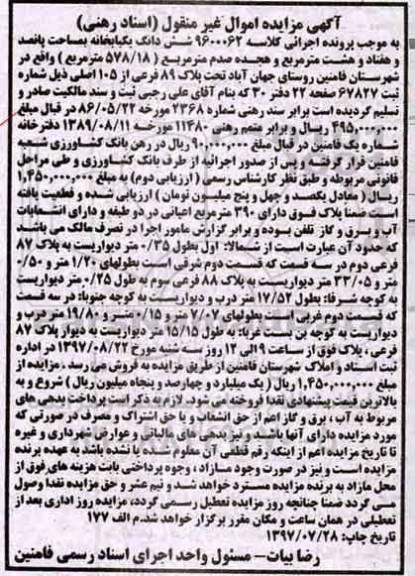 آگهی مزایده اموال غیر منقول (اسناد رهنی)
به موجب پرونده اجرائی کلاسه ۹۶۰۰۰۶۲ شش دانگ یکبابخانه بمساحت پانصد
و هفتاد و هشت مترمربع و هجده صدم مترمربع ( ۵۷۸/۱۸ مترمربع ) واقع در
شهرستان فامنین روستای جهان آباد تحت پلاک ۸۹ فرعی از ۱۰۵ اصلی ذیل شماره
ثبت ۶۷۸۲۷ صفحه ۲۲ دفتر ۳۰ که بنام آقای علی رجبی ثبت و سند مالکیت صادر و
تسلیم گردیده است برابر سند رهنی شماره ۲۳۶۸ مورخه ۸۶/۰۵/۲۲ در قبال مبلغ
۴۹۵,۰۰۰,۰۰۰ ریال و برابر متمم رهنی ۱۱۴۸۰ مورخه ۱۳۸۹/۰۸/۱۱ دفترخانه
شماره یک فامنین در قبال مبلغ ۹۰,۰۰۰,۰۰۰ ریال در رهن بانک کشاورزی شعبه
فامنین قرار گرفته و پس از صدور اجرائیه از طرف بانک کشاورزی و طی مراحل
قانونی مربوطه و طبق نظر کارشناس رسمی ( ارزیابی دوم) به مبلغ ۱,۴۵۰,۰۰۰,۰۰۰
ریال ( معادل یکصد و چهل و پنج میلیون تومان ) ارزیابی شده و قطعیت یافته
است ضمنا پلاک فوق دارای ۳۹۰ مترمربع اعیانی در دو طبقه و دارای انشعابات
آب و برق و گاز تلفن بوده و برابر گزارش مامور اجرا در تصرف مالک می باشد
که حدود آن عبارت است از شمالا: اول بطول ۰/۳۵ متر دیواریست به پلاک ۸۷
فرعی دوم در سه قسمت که قسمت دوم شرقی است بطولهای ۱/۲۰ متر و ۰/۵۰
متر و ۳۳/۰۵ متر دیواریست به پلاک ۸۸ فرعی سوم به طول ۰/۲۵ متر دیواریست
به کوچه شرقا: بطول ۱۷/۵۲ متر درب و دیواریست به کوچه جنوبا: در سه قسمت
که قسمت دوم غربی است بطولهای ۷/۰۷ متر و ۰/۱۵ متر و ۱۹/۸۰ متر درب و
دیواریست به کوچه بن بست غربا: به طول ۱۵/۱۵ متر دیواریست به دیوار پلاک ۸۷
فرعی ، پلاک فوق از ساعت ۹ الی ۱۲ روز سه شنبه مورخ ۱۳۹۷/۰۸/۲۲ در اداره
ثبت اسناد و املاک شهرستان فامنین از طریق مزایده به فروش می رسد . مزایده از
مبلغ ۱,۴۵۰,۰۰۰,۰۰۰ ریال ( یک میلیارد و چهارصد و پنجاه میلیون ریال ) شروع و به
بالاترین قیمت پیشنهادی نقدا فروخته می شود. لازم به ذکر است پرداخت بدهی های
مربوط به آب ، برق و گاز اعم از حق انشعاب و یا حق اشتراک و مصرف در صورتی که
مورد مزایده دارای آنها باشد و نیز بدهی های مالیاتی و عوارض شهرداری و غیره
تا تاریخ مزایده اعم از اینکه رقم قطعی آن معلوم شده یا نشده باشد به عهده برنده
مزایده است و نیز در صورت وجود مازاد ، وجوه پرداختی بابت هزینه های فوق از
محل مازاد به برنده مزایده مسترد خواهد شد و نیم عشر و حق مزایده نقدا وصول
می گردد ضمنا چنانچه روز مزایده تعطیل رسمی گردد، مزایده روز اداری بعد از
تعطیلی در همان ساعت و مکان مقرر برگزار خواهد شد.م الف ۱۷۷
تاریخ چاپ: ۱۳۹۷/۰۷/۲۸
رضا بیات- مسئول واحد اجرای اسناد رسمی فامنین